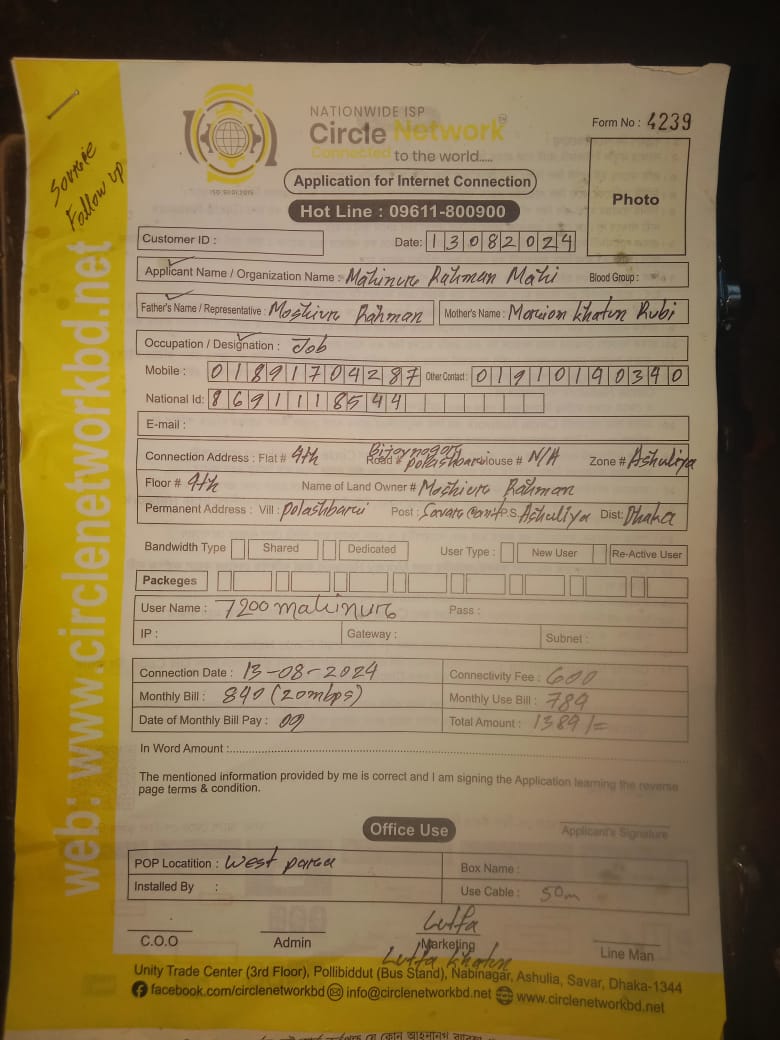 NATIONWIDE ISP
Circle Network
Connected to the world.....
ISO 9001:2015
Form No : 4239
Application for Internet Connection
Hot Line : 09611-800900
Photo
Follow up
web: www.circlenetworkbd.net
Customer ID :
Date: 13082024
Applicant Name / Organization Name : Mahinur Rahman Mahi Blood Group :
Father's Name / Representative : Moshiur Rahman Mother's Name : Moriom Khatun Rubi
Occupation / Designation : Job
Mobile : 01891704287 Other Contact : 01910190340
National Id: 8691118544
E-mail :
Connection Address : Flat # 4th Road # Bijoynogor Polashbari House # N/A Zone # Ashuliya
Floor # 4th Name of Land Owner # Moshiur Rahman
Permanent Address : Vill : Polashbari Post : Savar Cant P.S. Ashuliya Dist: Dhaka
Bandwidth Type Shared Dedicated User Type : New User Re-Active User
Packeges
User Name : 7200mahinur Pass :
IP : Gateway : Subnet :
Connection Date : 13-08-2024 Connectivity Fee : 600
Monthly Bill : 840 (20mbps) Monthly Use Bill : 789
Date of Monthly Bill Pay : 09 Total Amount : 1389/=
In Word Amount :
The mentioned information provided by me is correct and I am signing the Application learning the reverse
page terms & condition.
Office Use
Applicant's Signature
POP Locatition : West para Box Name :
Installed By : Use Cable : 50m
Lutfa
C.O.O Admin Marketing Line Man
Lutfa Khatun
Unity Trade Center (3rd Floor), Pollibiddut (Bus Stand), Nabinagar, Ashulia, Savar, Dhaka-1344
facebook.com/circlenetworkbd info@circlenetworkbd.net www.circlenetworkbd.net